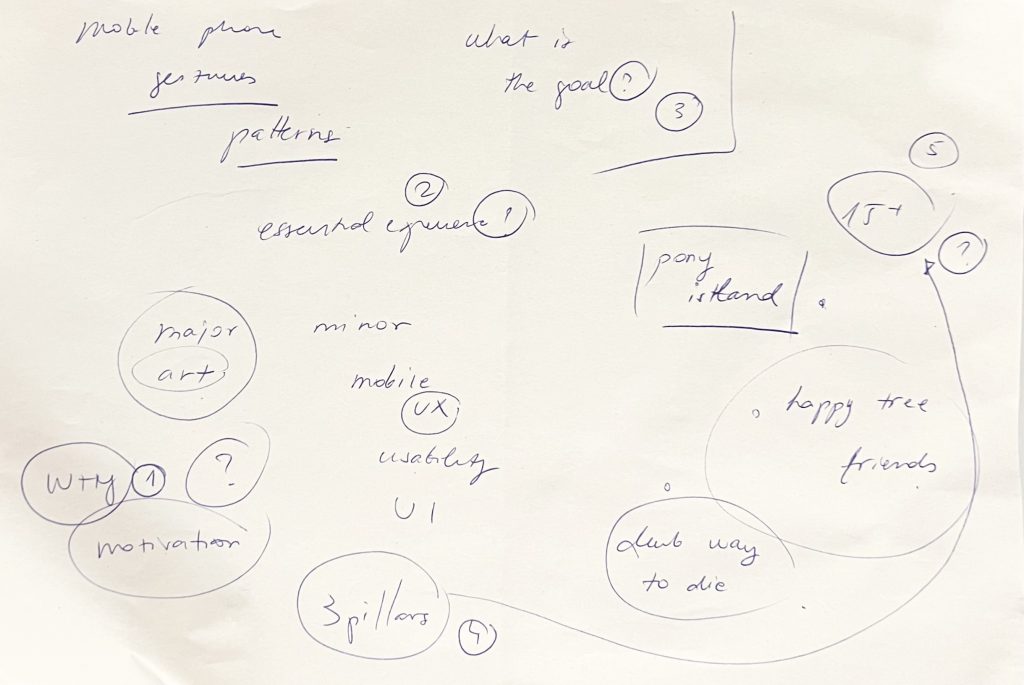 mobile phone
gestures
patterns
what is
the goal ?
3
5
15+
?
2
essential experience !
pony
island
major
art
minor
mobile
UX
usability
UI
happy tree
friends
WHY 1 ?
motivation
dumb way
to die
3 pillars
4